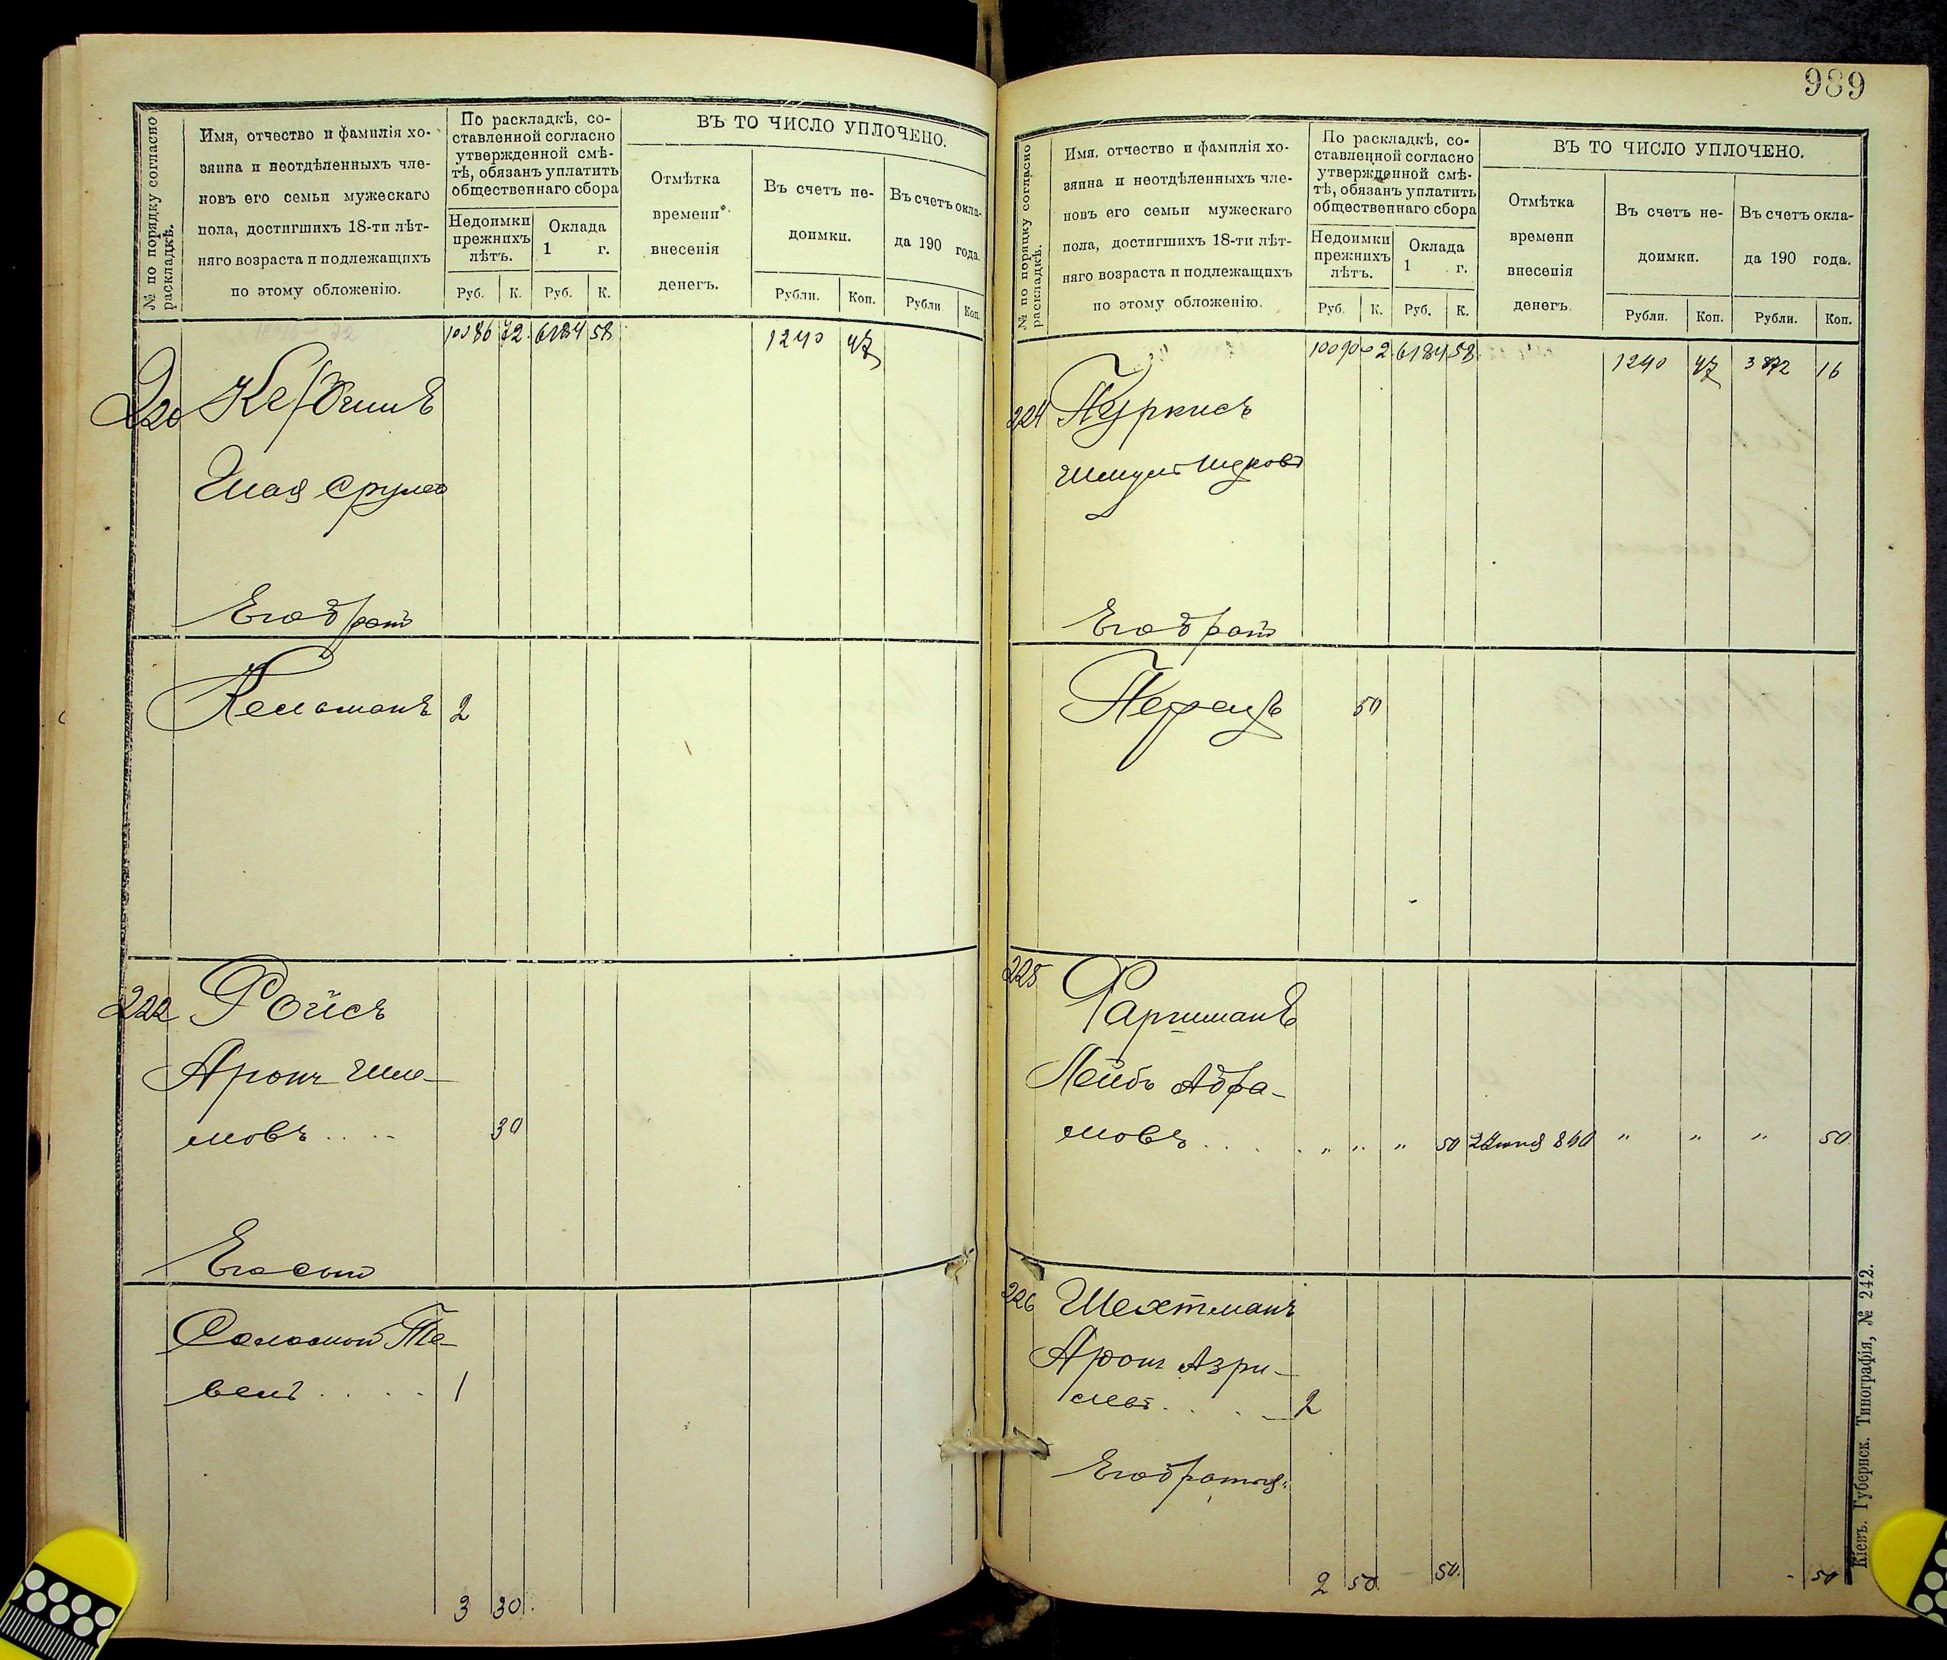 № по порядку согласно раскладкѣ.
Имя, отчество и фамилія хо-
зяина и неотдѣленныхъ чле-
новъ его семьи мужескаго
пола, достигшихъ 18-ти лѣт-
няго возраста и подлежащихъ
по этому обложенію.
По раскладкѣ, со-
ставленной согласно
утвержденной смѣ-
тѣ, обязанъ уплатить
общественнаго сбора
Недоимки
прежнихъ
лѣтъ.
Оклада
1 г.
Руб. К. Руб. К.
ВЪ ТО ЧИСЛО УПЛОЧЕНО.
Отмѣтка
времени
внесенія
денегъ.
Въ счетъ не-
доимки.
Рубли. Коп.
Въ счетъ окла-
да 190 года.
Рубли Коп.
10086 72 6184 58 1240 47
220
Шая Срулев
Его брат
Кельманъ 2
222 Ройсъ
Аронъ Шле-
мовъ .... 30
Его сын
Соломон Те-
вель .... 1
3 30
989
№ по порядку согласно раскладкѣ.
Имя, отчество и фамилія хо-
зяина и неотдѣленныхъ чле-
новъ его семьи мужескаго
пола, достигшихъ 18-ти лѣт-
няго возраста и подлежащихъ
по этому обложенію.
По раскладкѣ, со-
ставленной согласно
утвержденной смѣ-
тѣ, обязанъ уплатить
общественнаго сбора
Недоимки
прежнихъ
лѣтъ.
Оклада
1 г.
Руб. К. Руб. К.
ВЪ ТО ЧИСЛО УПЛОЧЕНО.
Отмѣтка
времени
внесенія
денегъ.
Въ счетъ не-
доимки.
Рубли. Коп.
Въ счетъ окла-
да 190 года.
Рубли. Коп.
10090 02 6184 58 1240 47 3872 16
224 Пуркисъ
Шмуль Ицков
Его брат
Перецъ 50
225 Фаргиманъ
Лейбъ Абра-
мовъ .... " " " 50 2 Июня 840 " " " 50
226 Шехтманъ
Арон Азри-
лев .... 2
Его братья:
2 50 50 - 50
Кіевъ. Губернск. Типографія, № 242.